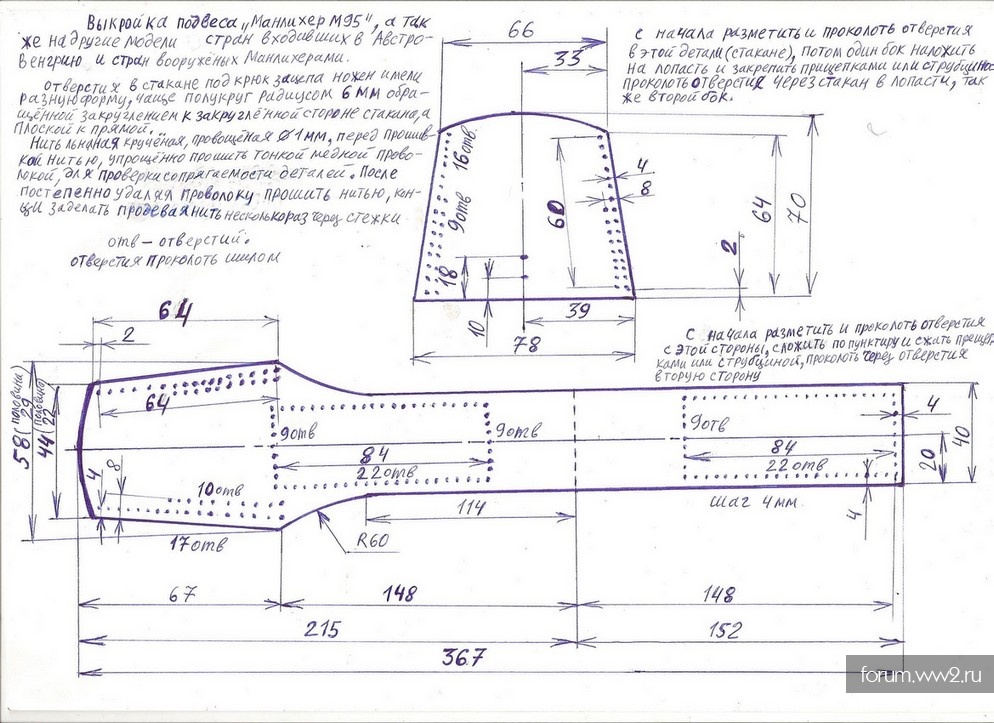 Выкройка подвеса „Манлихер М95", а так
же на другие модели стран входивших в Австро-
Венгрию и стран вооружёных Манлихерами.
отверстия в стакане под крюк зацепа ножен имели
разную форму, чаще полукруг радиусом 6 мм обра-
щённой закруглением к закруглённой стороне стакана, а
плоской к прямой.
Нить льняная кручёная, провощёная ⌀ 1 мм, перед прошив-
кой нитью, упрощённо прошить тонкой медной прово-
локой, для проверки сопрягаемости деталей. После
постепенно удаляя проволоку прошить нитью, кон-
цы заделать продевая нить несколько раз через стежки
отв – отверстий.
отверстия проколоть шилом
С начала разметить и проколоть отверстия
в этой детали (стакане), потом один бок наложить
на лопасть и закрепить прищепками или струбциной
проколоть отверстия через стакан в лопасти, так
же второй бок.
66
33
16 отв.
9 отв
60
4
8
64
70
2
18
10
39
78
С начала разметить и проколоть отверстия
с этой стороны, сложить по пунктиру и сжать прищеп-
ками или струбциной, проколоть через отверстия
вторую сторону
64
2
58 (половина 29)
44 (половина 22)
64
4
8
10 отв
17 отв
9 отв
84
22 отв
9 отв
9 отв
84
22 отв
4
40
20
4
шаг 4 мм
114
R60
67
148
148
215
152
367
forum.ww2.ru